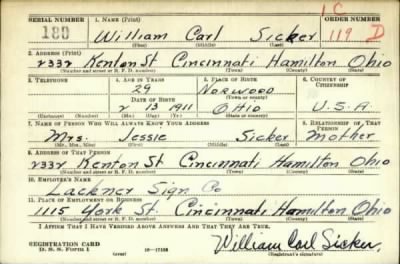 1C
SERIAL NUMBER 1. NAME (Print) ORDER NUMBER
180 William Carl Sicker 119 D
(First) (Middle) (Last)
2. ADDRESS (Print)
2332 Kenton St Cincinnati Hamilton Ohio
(Number and street or R. F. D. number) (Town) (County) (State)
3. TELEPHONE 4. AGE IN YEARS 5. PLACE OF BIRTH 6. COUNTRY OF CITIZENSHIP
29 Norwood
(Town or county)
DATE OF BIRTH
2 13 1911 Ohio U.S.A.
(Exchange) (Number) (Mo.) (Day) (Yr.) (State or country)
7. NAME OF PERSON WHO WILL ALWAYS KNOW YOUR ADDRESS 8. RELATIONSHIP OF THAT PERSON
Mrs. Jessie Sicker Mother
(Mr., Mrs., Miss) (First) (Middle) (Last)
9. ADDRESS OF THAT PERSON
2332 Kenton St Cincinnati Hamilton Ohio
(Number and street or R. F. D. number) (Town) (County) (State)
10. EMPLOYER'S NAME
Lackner Sign Co
11. PLACE OF EMPLOYMENT OR BUSINESS
1115 York St. Cincinnati Hamilton Ohio
(Number and street or R. F. D. number) (Town) (County) (State)
I AFFIRM THAT I HAVE VERIFIED ABOVE ANSWERS AND THAT THEY ARE TRUE.
REGISTRATION CARD
D. S. S. Form 1 (over) William Carl Sicker
(Registrant's signature)